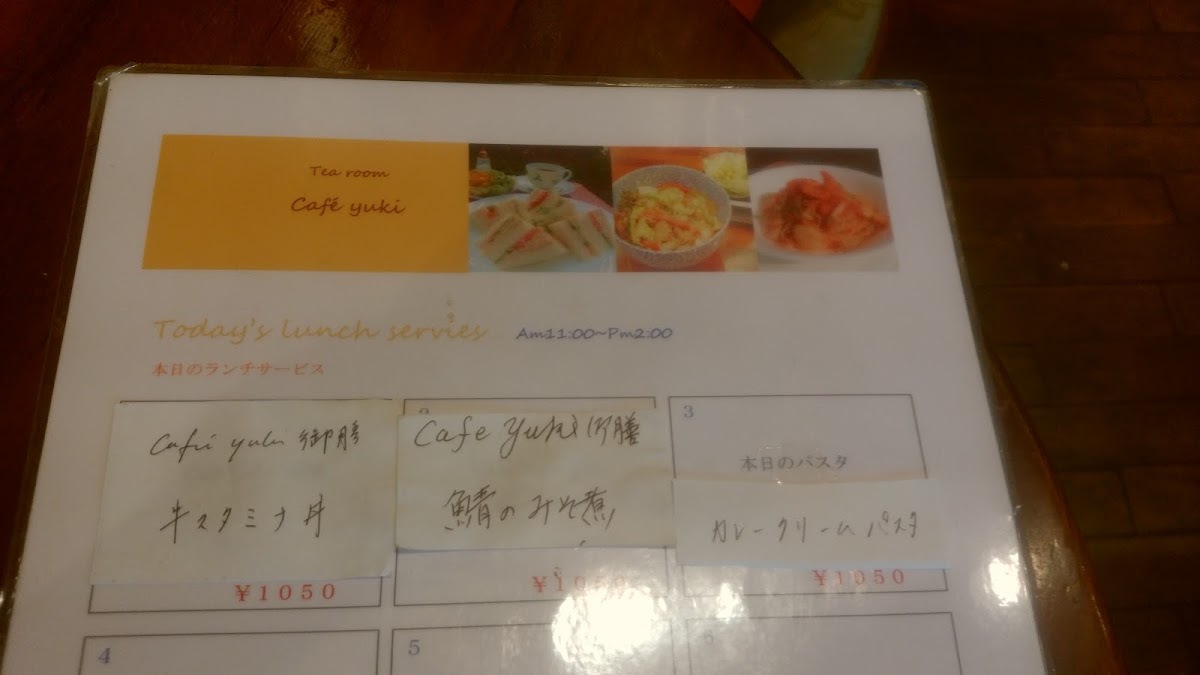 Tea room
Café yuki
Today's lunch servies Am11:00~Pm2:00
本日のランチサービス
Café yuki 御膳
牛スタミナ丼
¥1050
2
Cafe Yuki 御膳
鯖のみそ煮
¥1050
3
本日のパスタ
カレークリームパスタ
¥1050
4
5
6